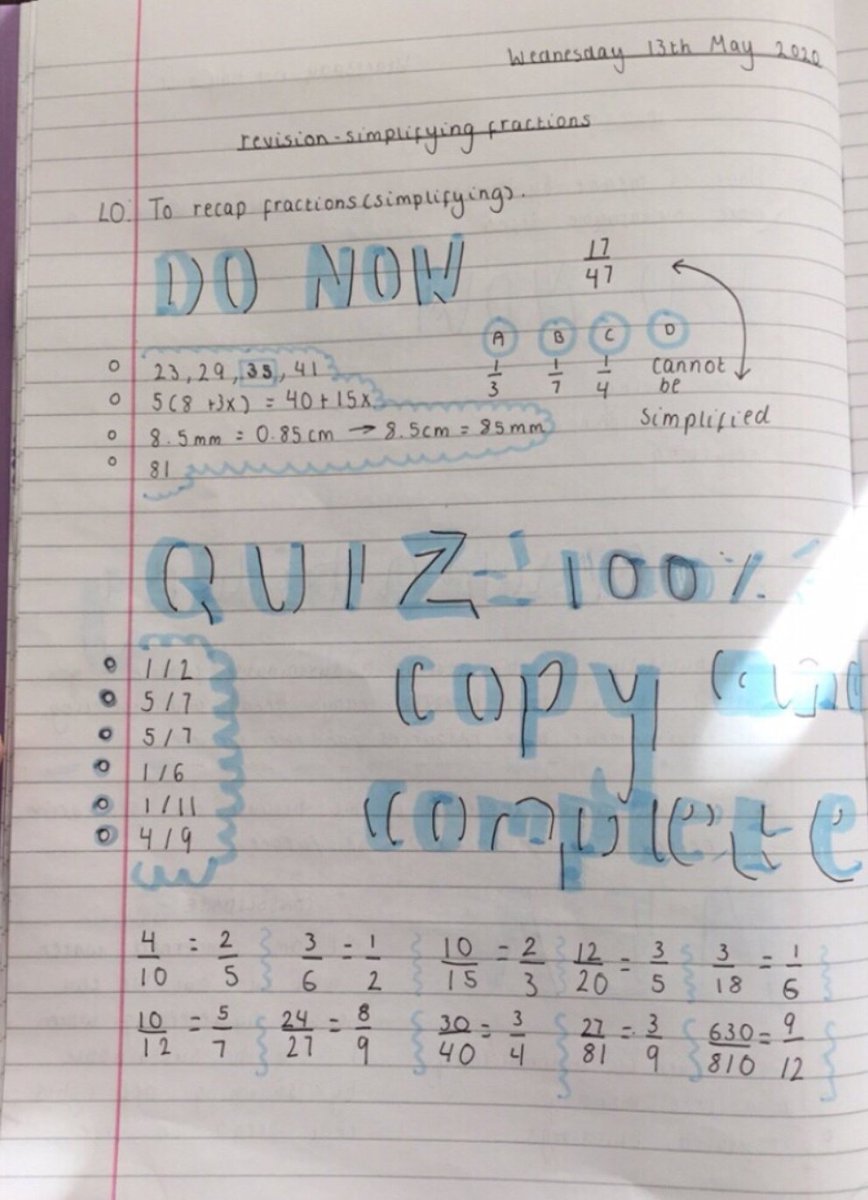 Wednesday 13th May 2020
revision - simplifying fractions
LO: To recap fractions (simplifying).
DO NOW
17/47
A B C D
1/3 1/7 1/4 cannot be simplified
23, 29, 35, 41
5(8 + 3x) = 40 + 15x
8.5mm = 0.85cm → 8.5cm = 85mm
81
QUIZ = 100%
1/2
5/7
5/7
1/6
1/11
4/9
copy and
complete
4/10 = 2/5 3/6 = 1/2 10/15 = 2/3 12/20 = 3/5 3/18 = 1/6
10/12 = 5/7 24/27 = 8/9 30/40 = 3/4 27/81 = 3/9 630/810 = 9/12